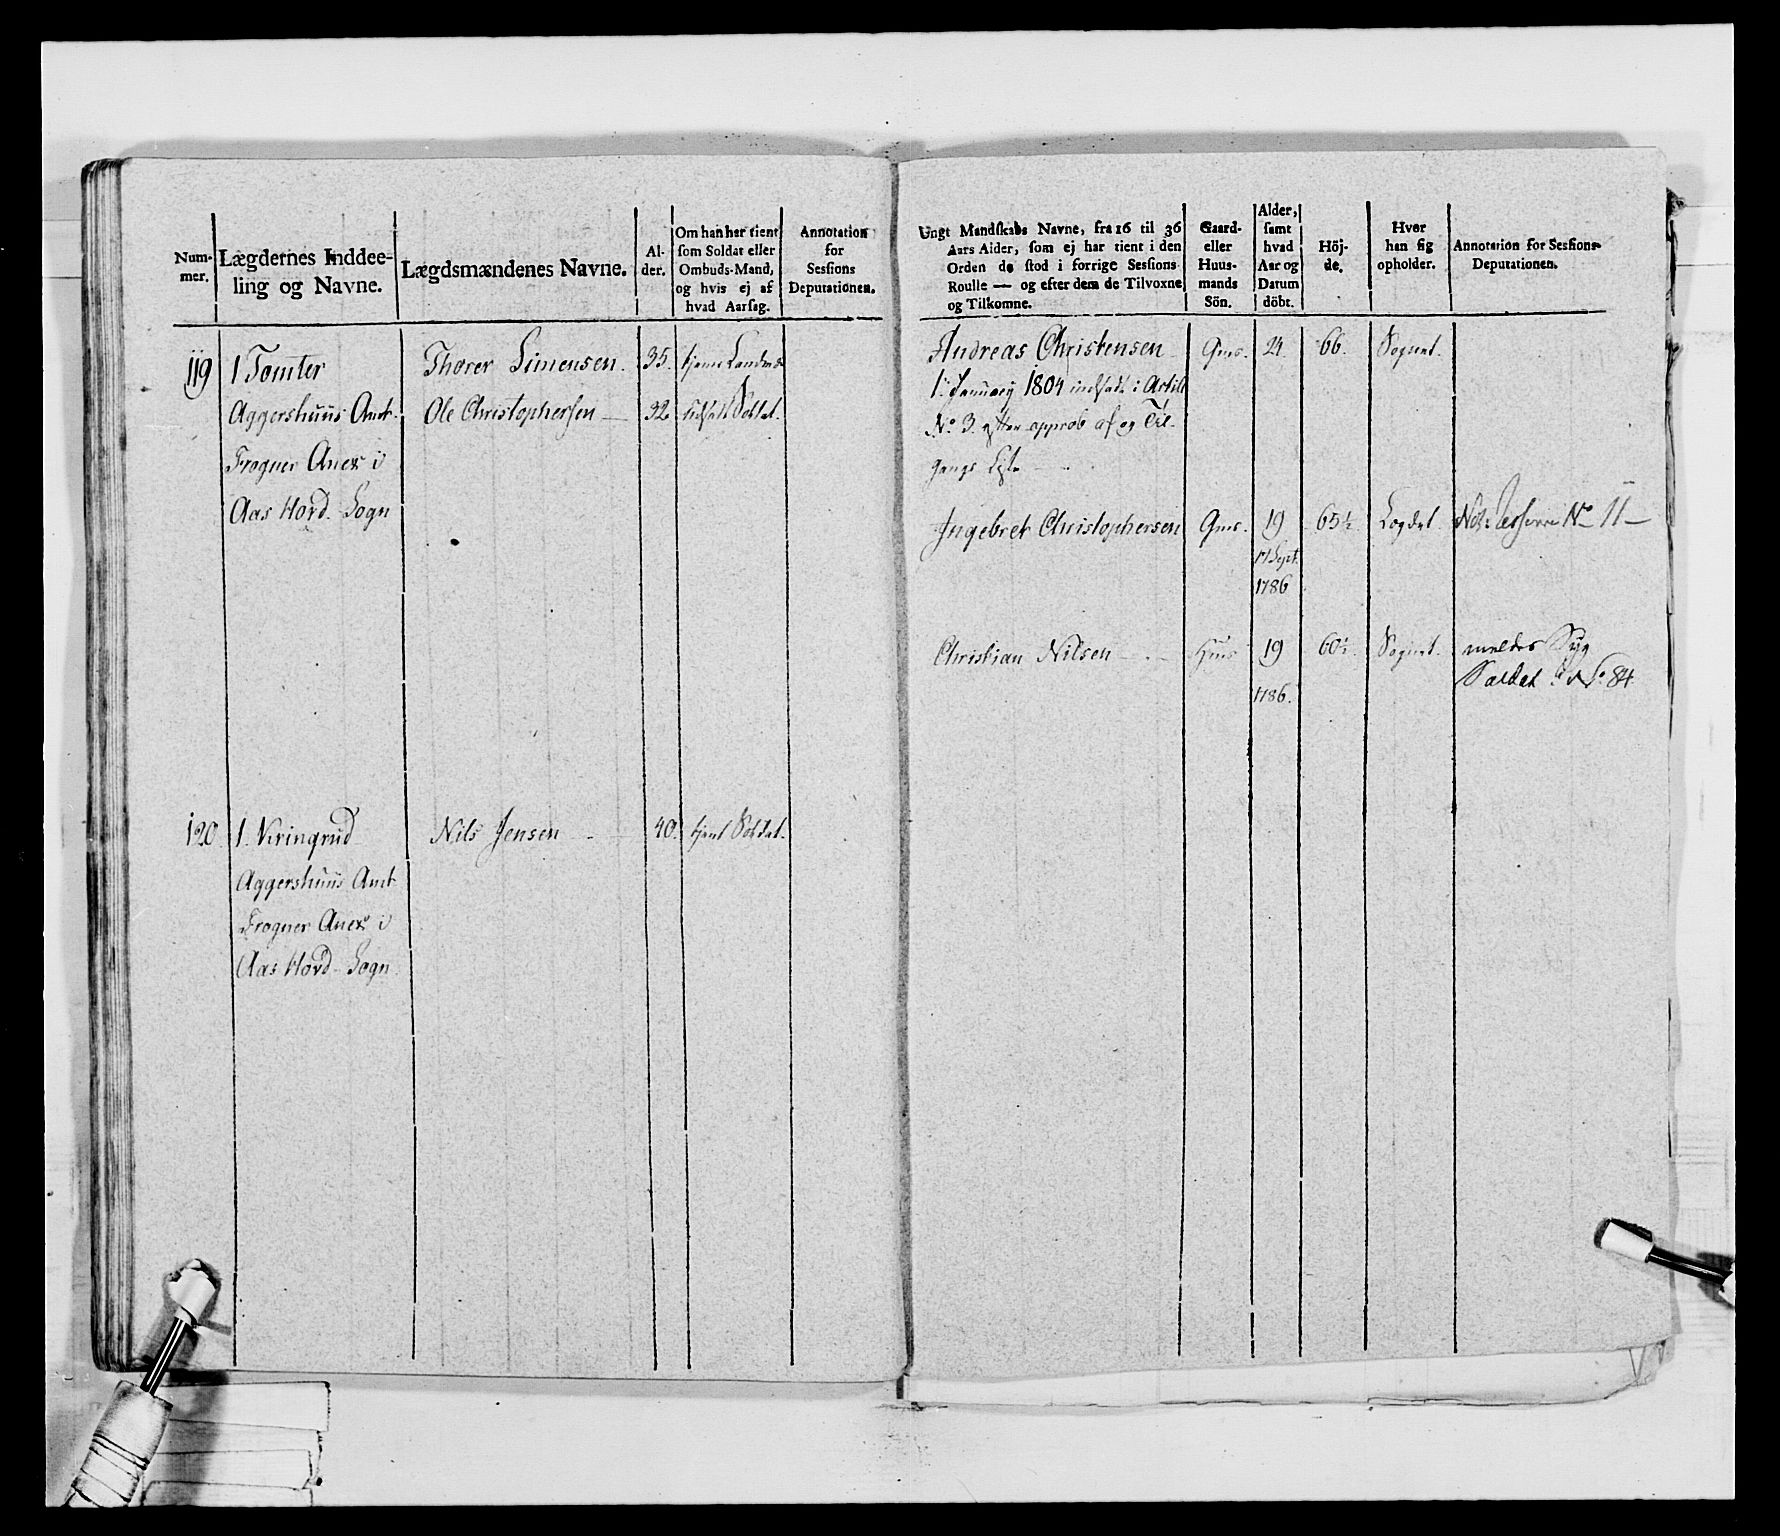 Num-
mer.
Lægdernes Inddee-
ling og Navne.
Lægdsmændenes Navne.
Al-
der.
Om han har tient
som Soldat eller
Ombuds-Mand,
og hvis ej af
hvad Aarsag.
Annotation
for
Sessions
Deputationen.
Ungt Mandskabs Navne, fra 16 til 36
Aars Alder, som ej har tient i den
Orden de stod i forrige Sessions
Roulle — og efter dem de Tilvoxne
og Tilkomne.
Gaard-
eller
Huus-
mands
Sön.
Alder,
samt
hvad
Aar og
Datum
döbt.
Höj-
de.
Hvor
han sig
opholder.
Annotation for Sessions-
Deputationen.
119 1 Tomter Thorer Simensen. 35.
Aggershuus Amt. Ole Christophersen — 32 Soldat.
Frogner Anex i
Aas Hovd. Sogn
120 1. Nils Jensen 40. tjent Soldat.
Aggershuus Amt
Frogner Anex i
Aas Hovd. Sogn
Andreas Christensen Gms. 24. 66. Sognet.
1. January 1804 indsadt i Artill
No 3. efter approb af og Til-
gangs Liste
Ingebret Christophersen Gms. 19 65½ Lægdet. No 11 —
17 Sept.
1786
Christian Nilsen — . — Hms 19 60½. Sognet. meldes Syg
1786. Soldat i No. 84